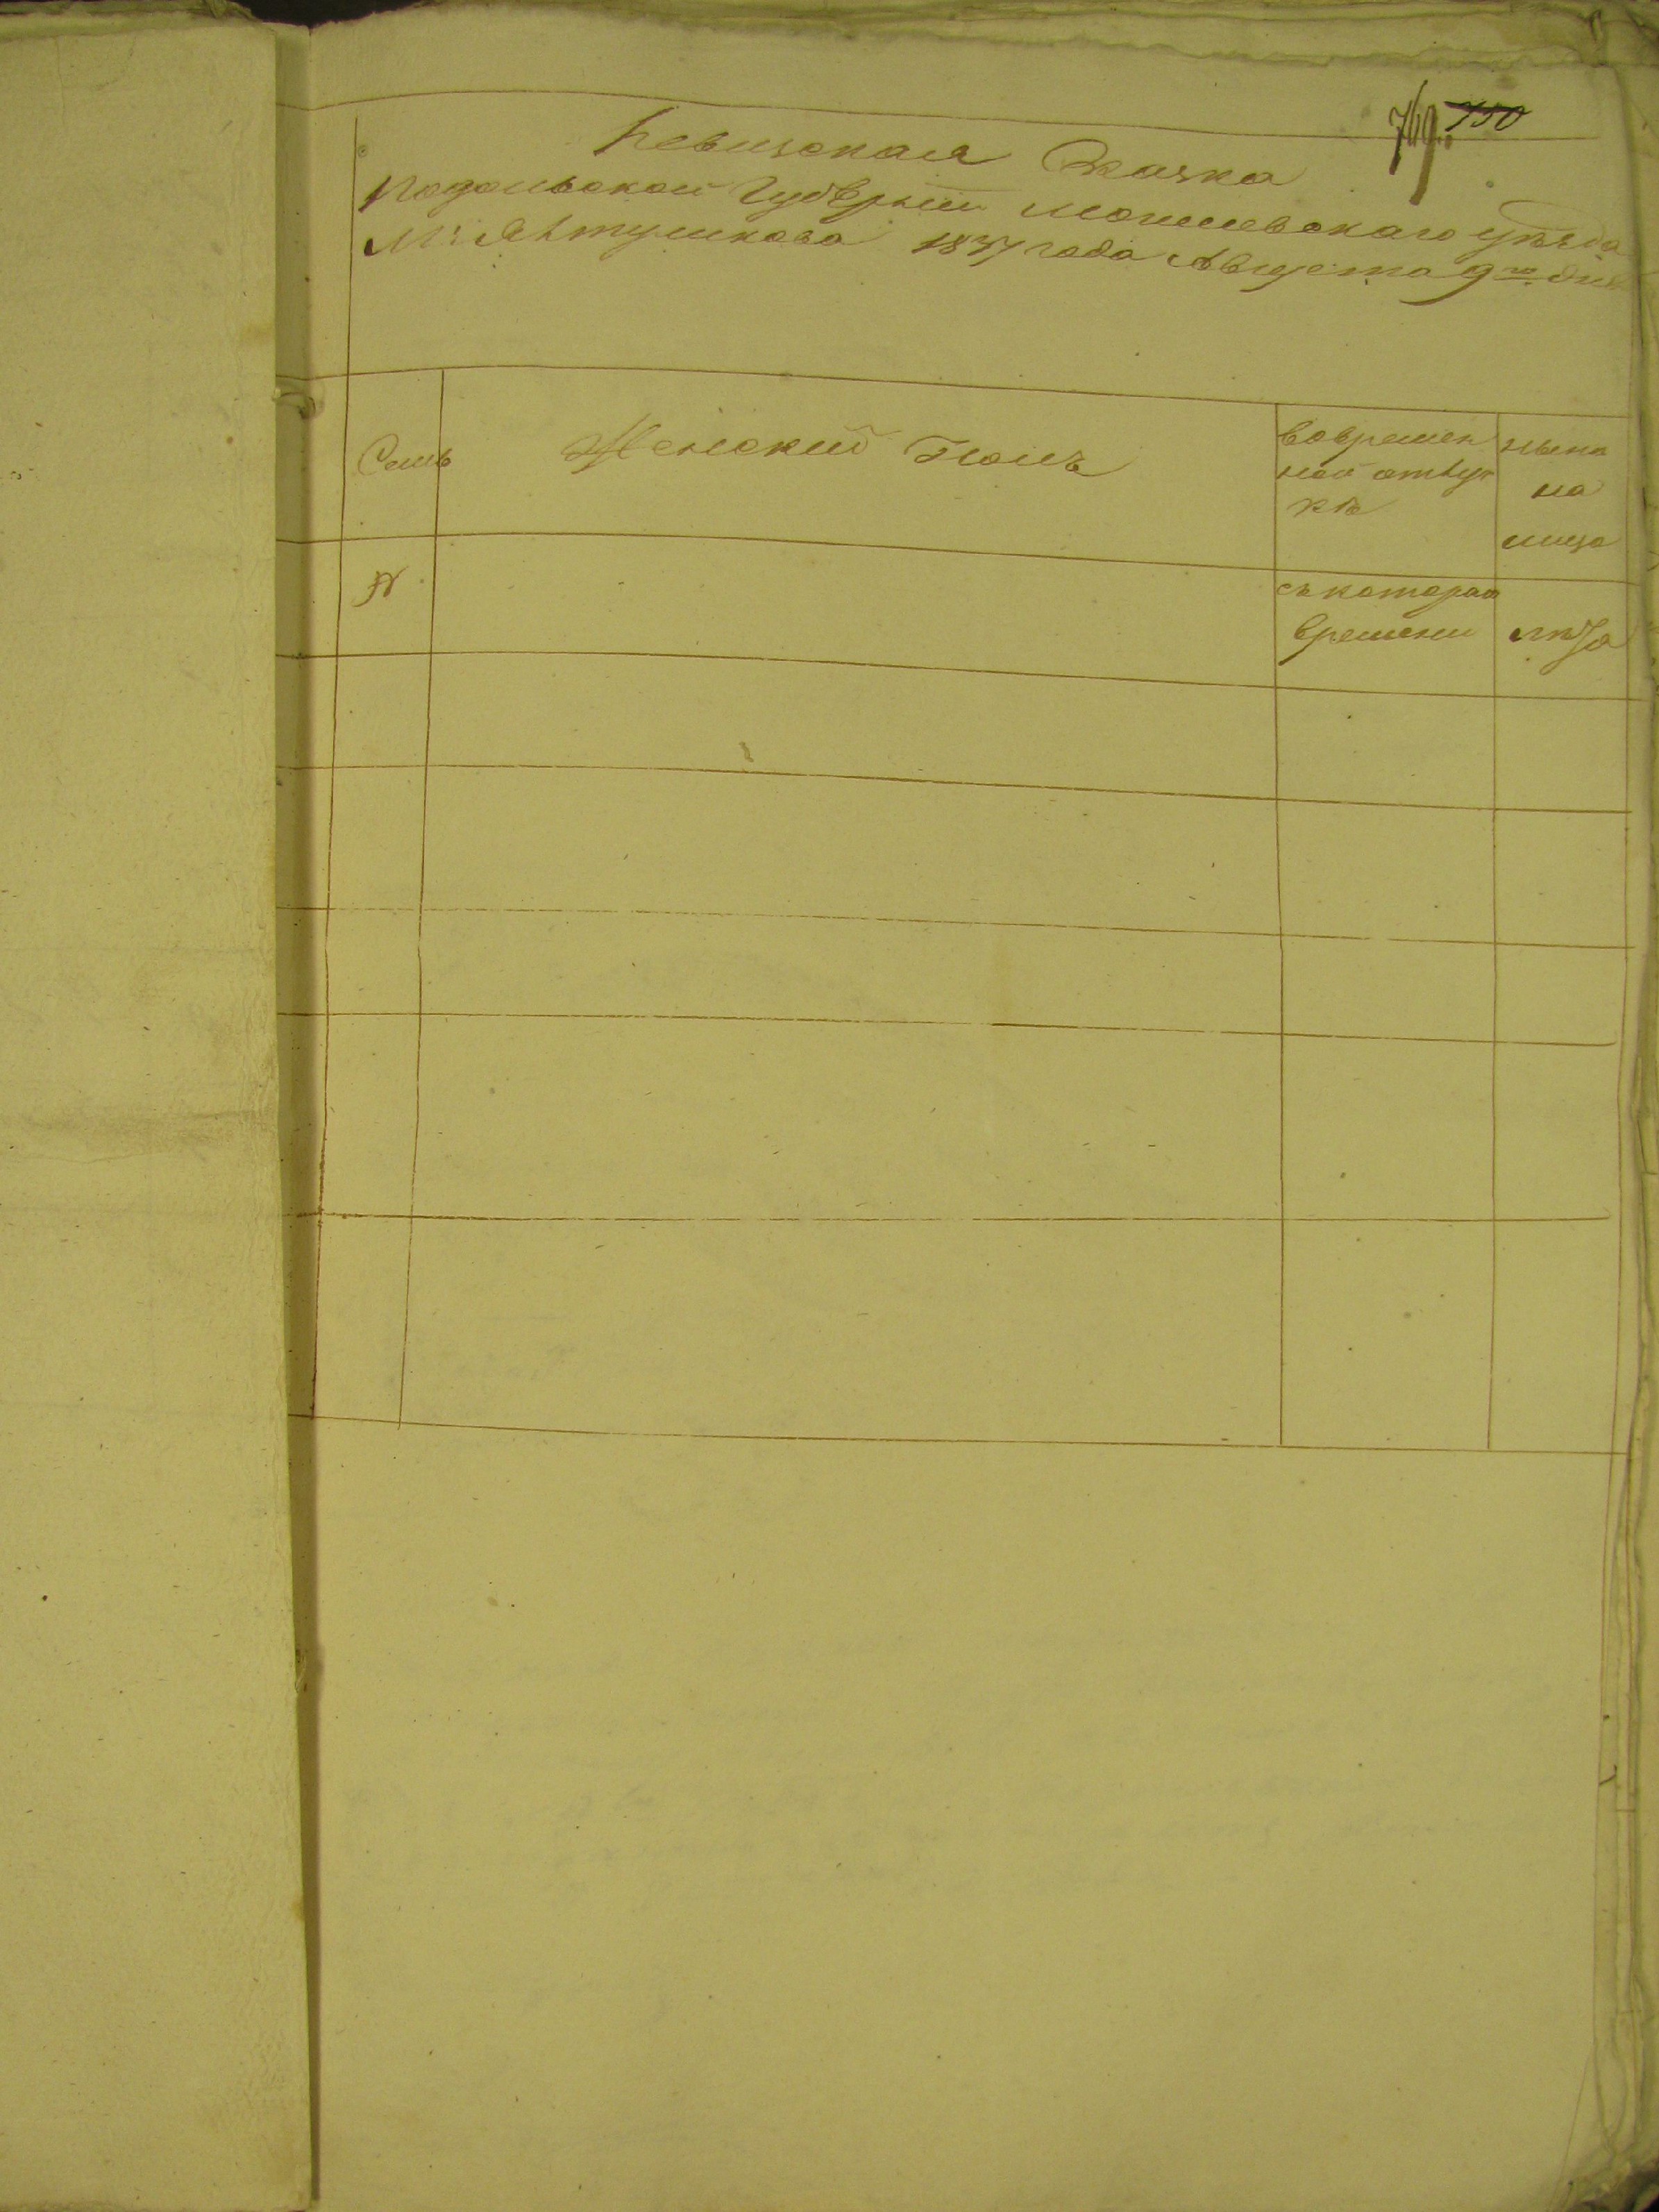 749. 750
Ревизская Скаска
Подольской Губернии Могилевскаго уезда
М: Ялтушкова 1837 года Августа 9го дня
Семь
Женский Полъ
вовремен
ной отлуч
кѣ
ныне
на
лицо
№
скотораго
времени
лѣта